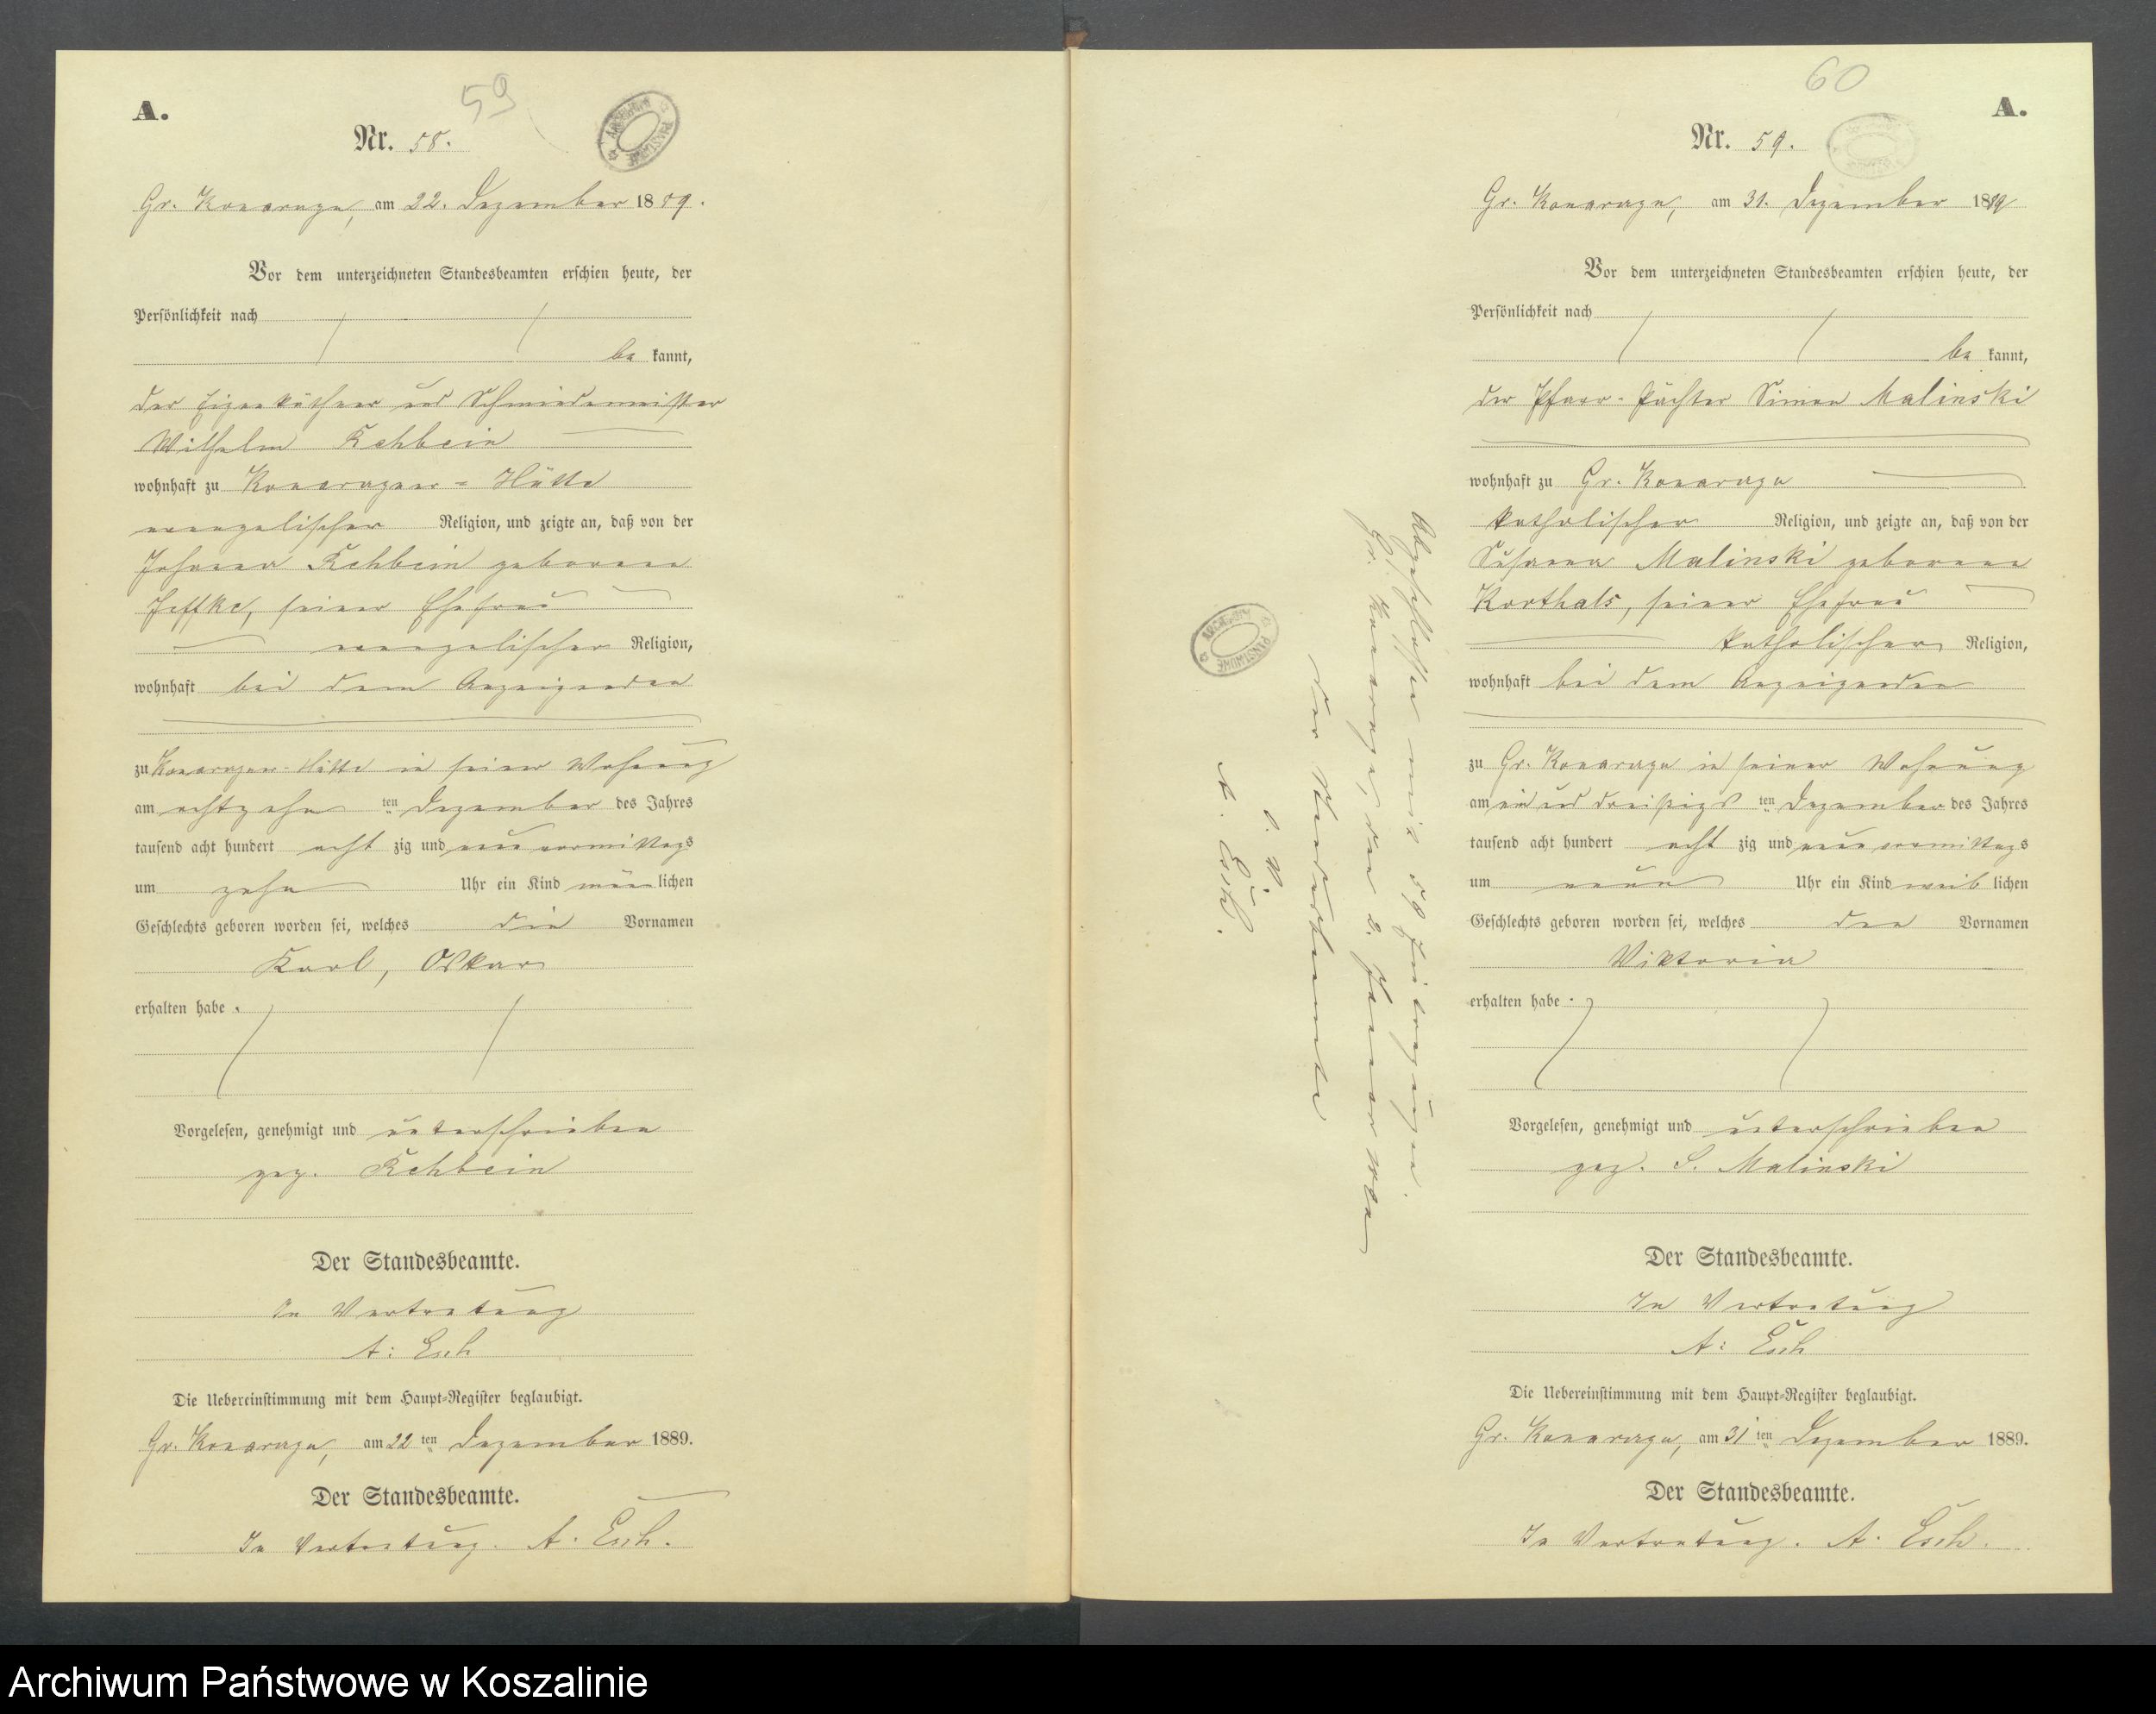 59
A.
Nr. 58.
Gr. Konarzyn, am 22. Dezember 1889.
Vor dem unterzeichneten Standesbeamten erschien heute, der
Persönlichkeit nach
be kannt,
der Eigenkäthner und Schmiedemeister
Wilhelm Rehbein
wohnhaft zu Konarzyner-Hütte
evangelischer Religion, und zeigte an, daß von der
Johanna Rehbein geborene
Jeffke, seiner Ehefrau
evangelischer Religion,
wohnhaft bei dem Anzeigenden
zu Konarzyner-Hütte in seiner Wohnung
am achtzehn ten Dezember des Jahres
tausend acht hundert acht zig und neun vormittags
um zehn Uhr ein Kind männlichen
Geschlechts geboren worden sei, welches die Vornamen
Karl, Oskar
erhalten habe.
Vorgelesen, genehmigt und unterschrieben
gez. Rehbein
Der Standesbeamte.
In Vertretung
A: Esch
Die Uebereinstimmung mit dem Haupt-Register beglaubigt.
Gr. Konarzyn, am 22 ten Dezember 1889.
Der Standesbeamte.
In Vertretung. A. Esch.
60
A.
Nr. 59.
Gr. Konarzyn, am 31. Dezember 1889
Vor dem unterzeichneten Standesbeamten erschien heute, der
Persönlichkeit nach
be kannt,
der Pfarr-Pächter Simon Malinski
wohnhaft zu Gr. Konarzyn
katholischer Religion, und zeigte an, daß von der
Susanna Malinski geborene
Korthals, seiner Ehefrau
katholischer Religion,
wohnhaft bei dem Anzeigenden
zu Gr. Konarzyn in seiner Wohnung
am ein und dreißigs ten Dezember des Jahres
tausend acht hundert acht zig und neun vormittags
um neun Uhr ein Kind weib lichen
Geschlechts geboren worden sei, welches den Vornamen
Viktoria
erhalten habe.
Vorgelesen, genehmigt und unterschrieben
gez. S. Malinski
Der Standesbeamte.
In Vertretung
A: Esch
Die Uebereinstimmung mit dem Haupt-Register beglaubigt.
Gr. Konarzyn, am 31 ten Dezember 1889.
Der Standesbeamte.
In Vertretung. A. Esch.
Abgeschlossen mit 59 Eintragungen.
Gr. Konarzyn, den 2. Januar 1890
Der Standesbeamte
i. V.
A. Esch.
ARCHIWUM PAŃSTWOWE
Archiwum Państwowe w Koszalinie